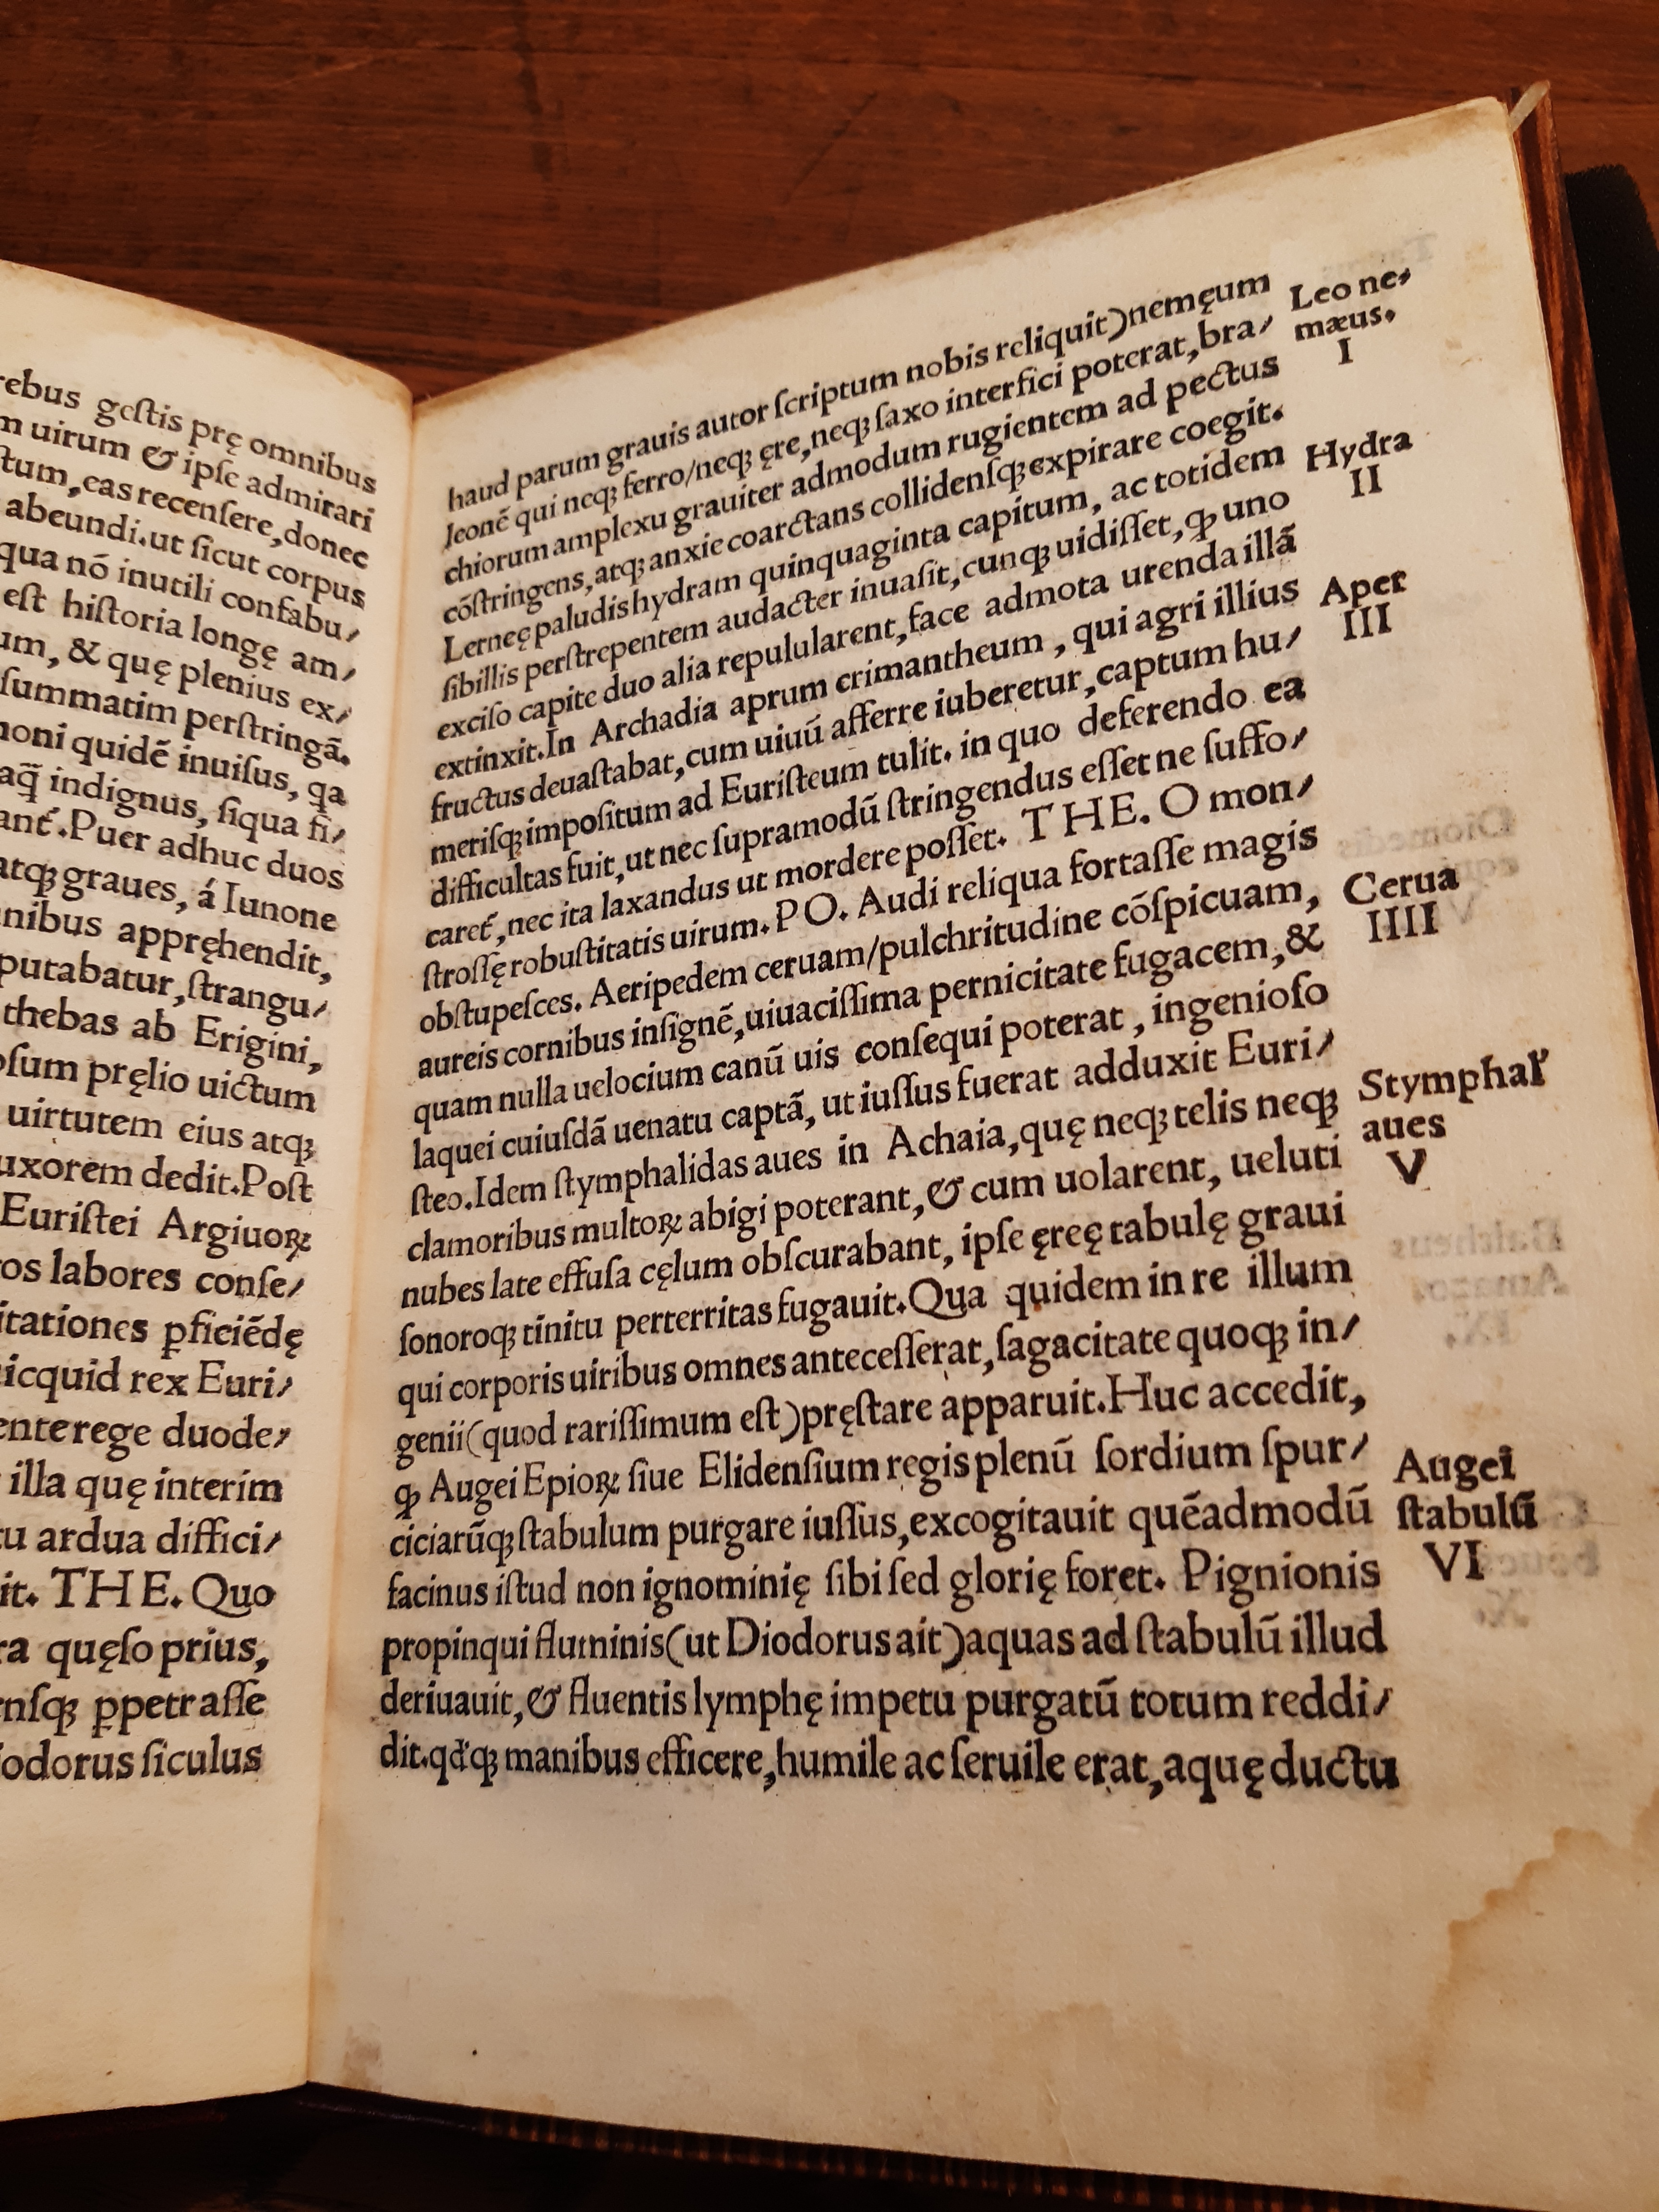 rebus geſtis prę omnibus
uirum & ipſe admirari
eas recenſere, donec
abeundi. ut ſicut corpus
qua nō inutili confabu/
eſt hiſtoria longę am/
& quę plenius ex/
ſummatim perſtringā.
quidē inuiſus, qa
indignus, ſiqua fi/
Puer adhuc duos
atqꝫ graues, á Iunone
appręhendit,
putabatur, ſtrangu/
thebas ab Erigini,
pręlio uictum
uirtutem eius atqꝫ
uxorem dedit. Poſt
Euriſtei Argiuoꝝ
labores conſe/
ꝑficiēdę
rex Euri/
rege duode/
illa quę interim
ardua diffici/
THE. Quo
quęſo prius,
ꝑpetraſſe
ſiculus
haud parum grauis autor ſcriptum nobis reliquit) nemęum
leonē qui neqꝫ ferro/neqꝫ ęre, neqꝫ ſaxo interfici poterat, bra/
chiorum amplexu grauiter admodum rugientem ad pectus
cōſtringens, atqꝫ anxie coarctans collidenſqꝫ expirare coegit.
Lerneę paludis hydram quinquaginta capitum, ac totidem
ſibillis perſtrepentem audacter inuaſit, cunqꝫ uidiſſet, ꝙ uno
exciſo capite duo alia repulularent, face admota urenda illā
extinxit. In Archadia aprum erimantheum, qui agri illius
fructus deuaſtabat, cum uiuū afferre iuberetur, captum hu/
meriſqꝫ impoſitum ad Euriſteum tulit. in quo deferendo ea
difficultas fuit, ut nec ſupramodū ſtringendus eſſet ne ſuffo/
caret᷒, nec ita laxandus ut mordere poſſet. THE. O mon/
ſtroſſę robuſtitatis uirum. PO. Audi reliqua fortaſſe magis
obſtupeſces. Aeripedem ceruam/pulchritudine cōſpicuam,
aureis cornibus inſignē, uiuaciſſima pernicitate fugacem, &
quam nulla uelocium canū uis conſequi poterat, ingenioſo
laquei cuiuſdā uenatu captā, ut iuſſus fuerat adduxit Euri/
ſteo. Idem ſtymphalidas aues in Achaia, quę neqꝫ telis neqꝫ
clamoribus multoꝝ abigi poterant, & cum uolarent, ueluti
nubes late effuſa cęlum obſcurabant, ipſe ęreę tabulę graui
ſonoroqꝫ tinitu perterritas fugauit. Qua quidem in re illum
qui corporis uiribus omnes anteceſſerat, ſagacitate quoqꝫ in/
genii (quod rariſſimum eſt) pręſtare apparuit. Huc accedit,
ꝙ Augei Epioꝝ ſiue Elidenſium regis plenū ſordium ſpur/
ciciarūqꝫ ſtabulum purgare iuſſus, excogitauit quēadmodū
facinus iſtud non ignominię ſibi ſed glorię foret. Pignionis
propinqui fluminis (ut Diodorus ait) aquas ad ſtabulū illud
deriuauit, & fluentis lymphę impetu purgatū totum reddi/
dit. qd'qꝫ manibus efficere, humile ac ſeruile erat, aquę ductu
Leo ne/
mæus.
I
Hydra
II
Aper
III
Cerua
IIII
Stymphal'
aues
V
Augei
ſtabulū
VI